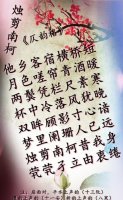 烛剪南柯
《仄韵格》
他乡客宿横桥短
月色嗟帘青酒暖
两鬓凭栏尺素寒
杯中冷落风犹晚
双眸顾影寸心
梦里阑珊人已远
烛剪南柯昔我身
茕茕孑立由衷绻